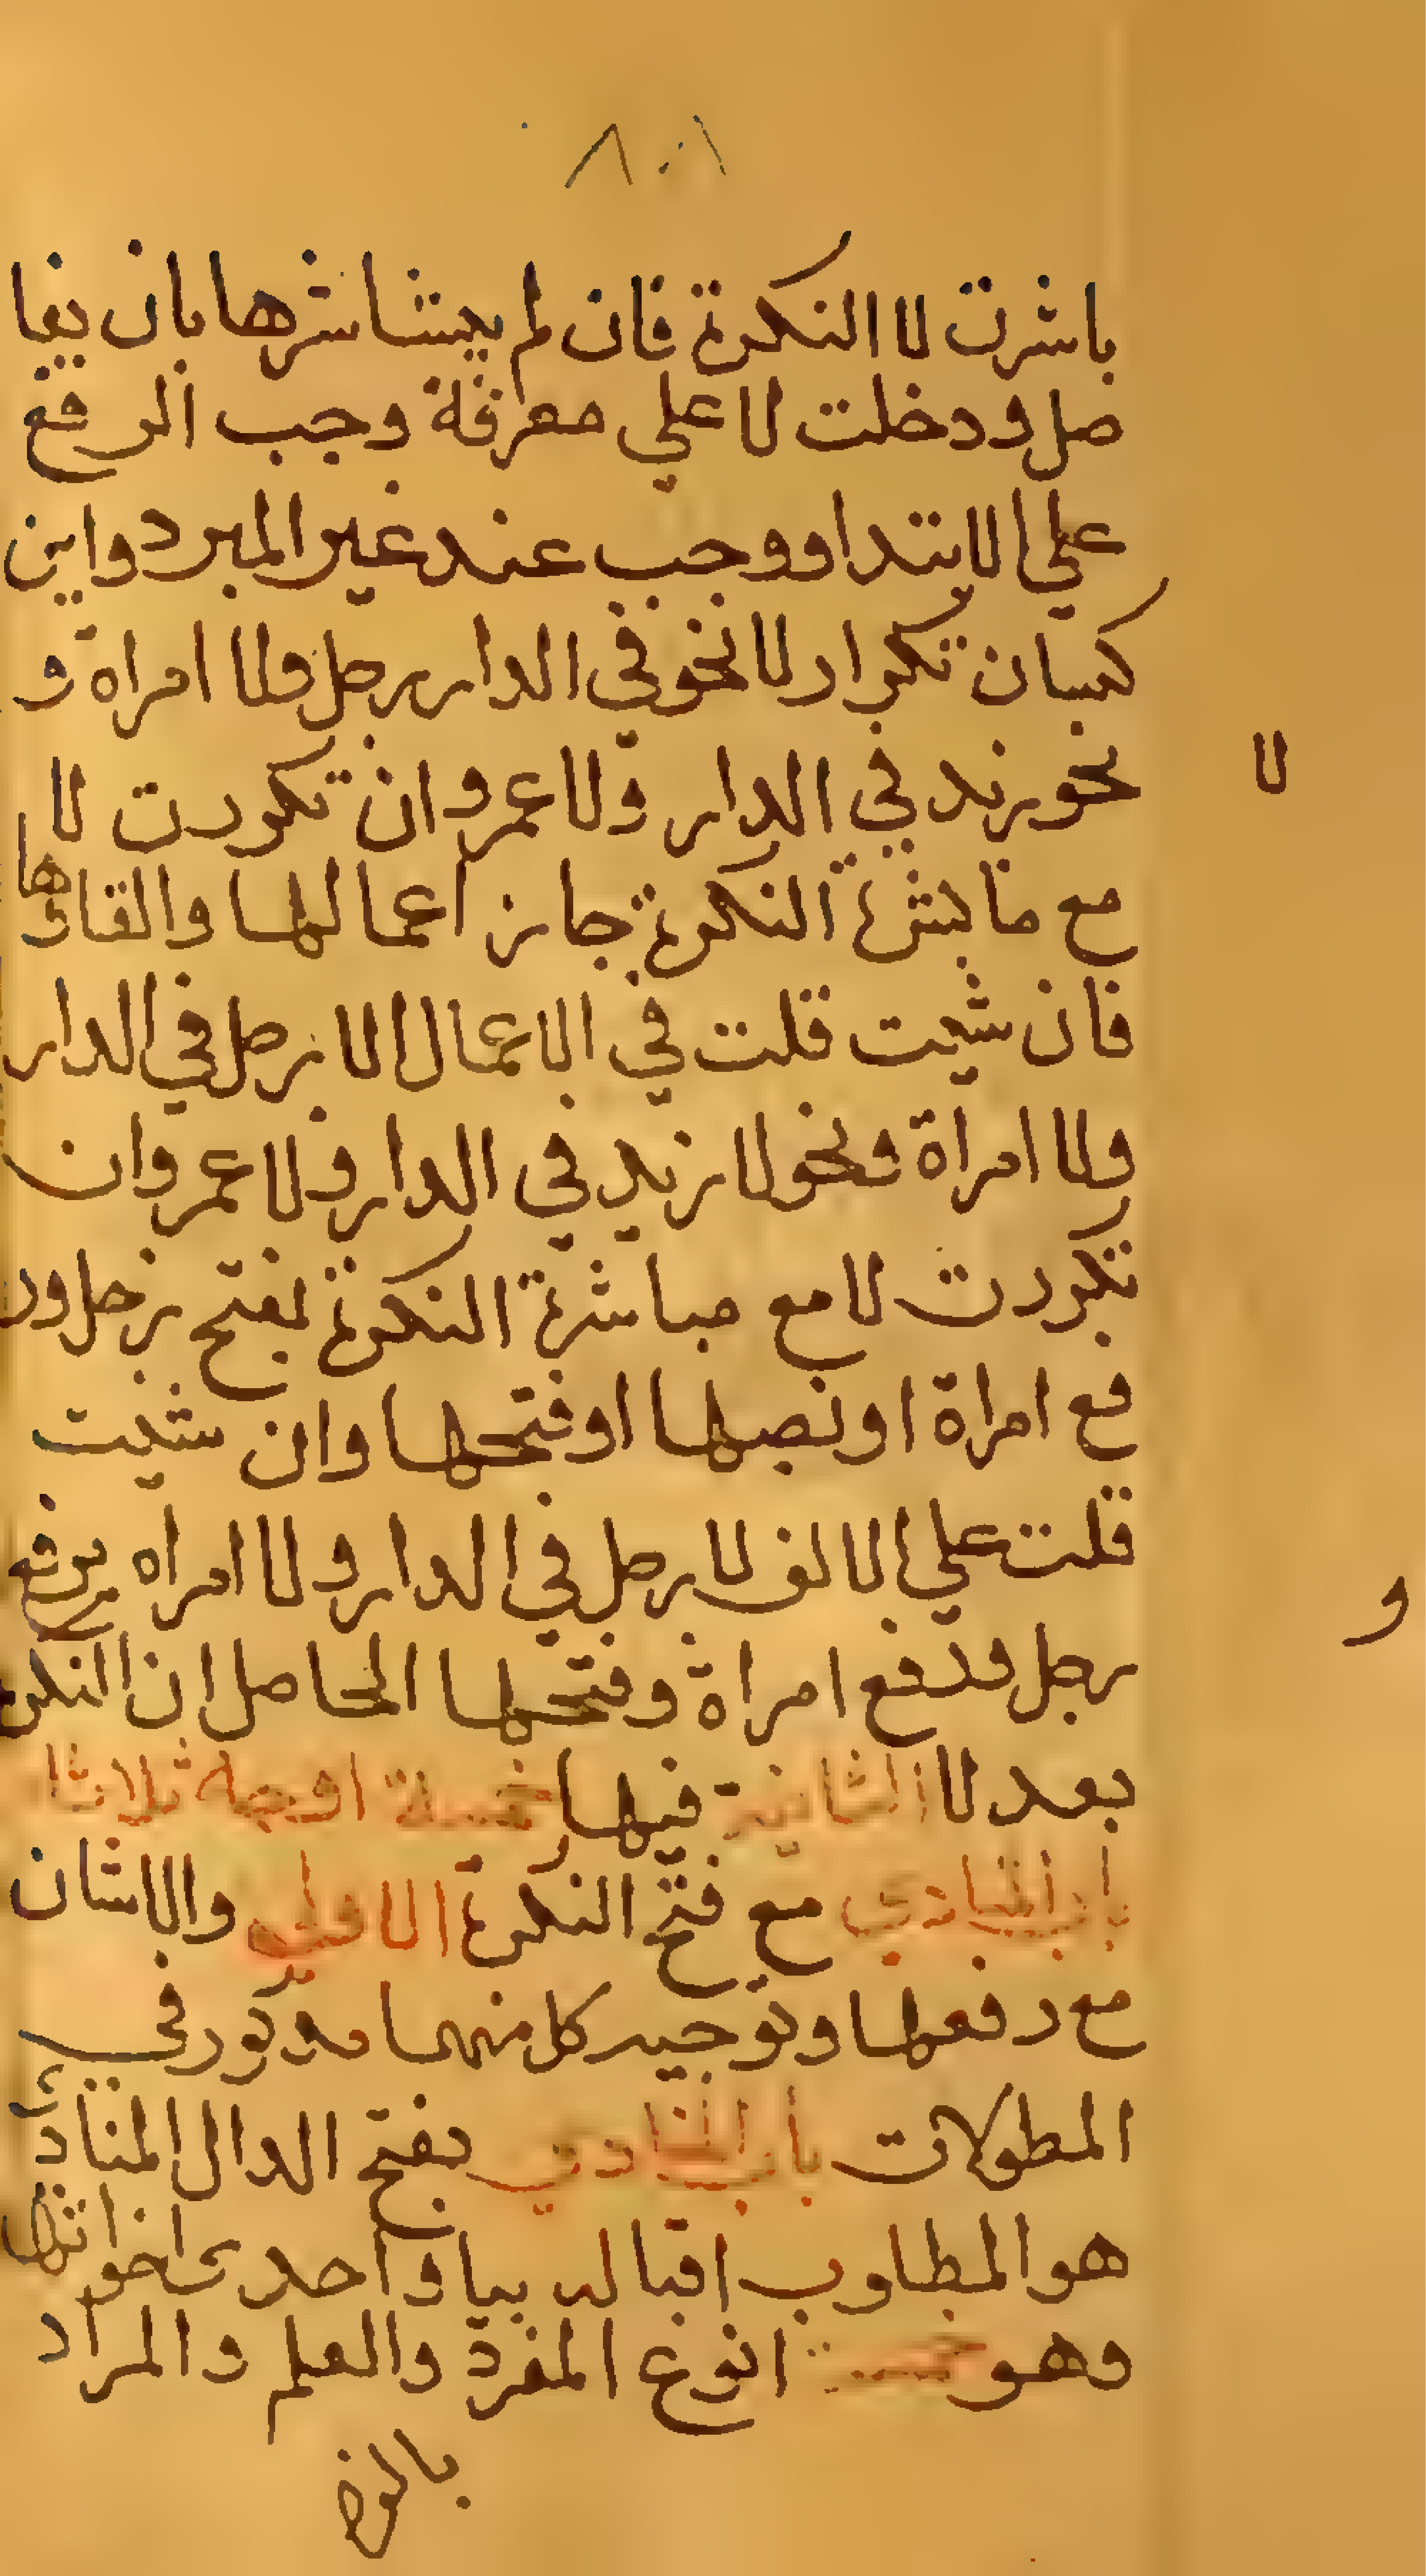 ١٠٨
باشرت لا النكرة فان لم يبشاشرها بان يفا
صل ودخلت لا علي معرفة وجب الر فع
علي الابتدا ووجب عند غير المبرد وابن
كيسان تكرار لا نحو في الدار رجل ولا امراه و
لا
نحو زيد في الدار ولا عمر وان تكررت لا
مع مابشرة النكرة جايز اعمالها والقاوها
فان شيت قلت في الاعمال لا رجل في الدار
ولا امراة ونحو لا زيد في الدار ولا عمر وان
تكررت لا مع مباشرة النكرة بفتح رجل ور
فع امراة او نصبها او فتحها وان شيت
قلت علي الالف لا رجل في الدار ولا امراه برفع
و
رجل ورفع امراة وفتحها الحاصل ان النكرة
بعد لا الثانية فيها خمسة اوجه ثلاثا
باب المنادي مع فتح النكرة الاولي والاشان
مع رفعها وتوجيه كل منهما مذكور في
المطولات باب المنادي بفتح الدال المنادي
هو المطلوب اقباله بيا واحدى اخواتها
وهو خمسة انوع المفرد والعلم والمراد